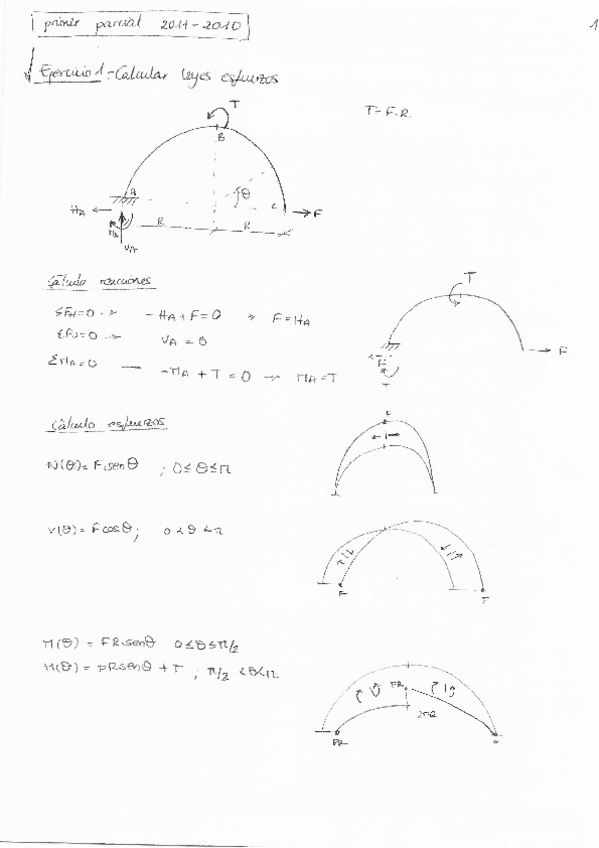 primer parcial 2011-2010
1
Ejercicio 1.- Calcular leyes esfuerzos
T
T=F·R
B
A
θ
C
HA
F
R
R
MA
VA
Cálculo reacciones
ΣFH=0 → -HA+F=0 → F=HA
ΣFV=0 → VA=0
ΣMA=0 — -MA+T=0 → MA=T
T
F
F
T
Cálculo esfuerzos
N(θ)=F·senθ ; 0≤θ≤π
V(θ)=Fcosθ; 0<θ<π
F
F
M(θ) = FR·senθ 0≤θ≤π/2
M(θ) = FRsenθ + T ; π/2 <θ<π
FR
FR